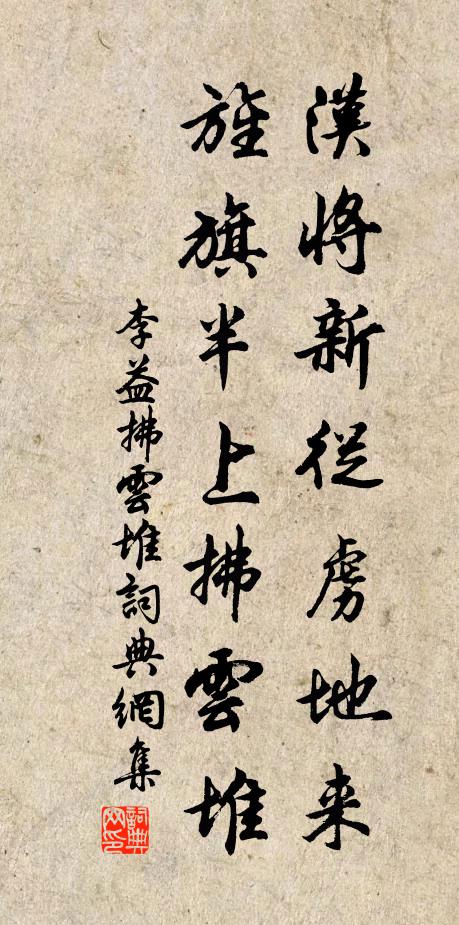 漢將新從虜地来
旌旗半上拂雲堆
李益拂雲堆詞典網集
詞典网印